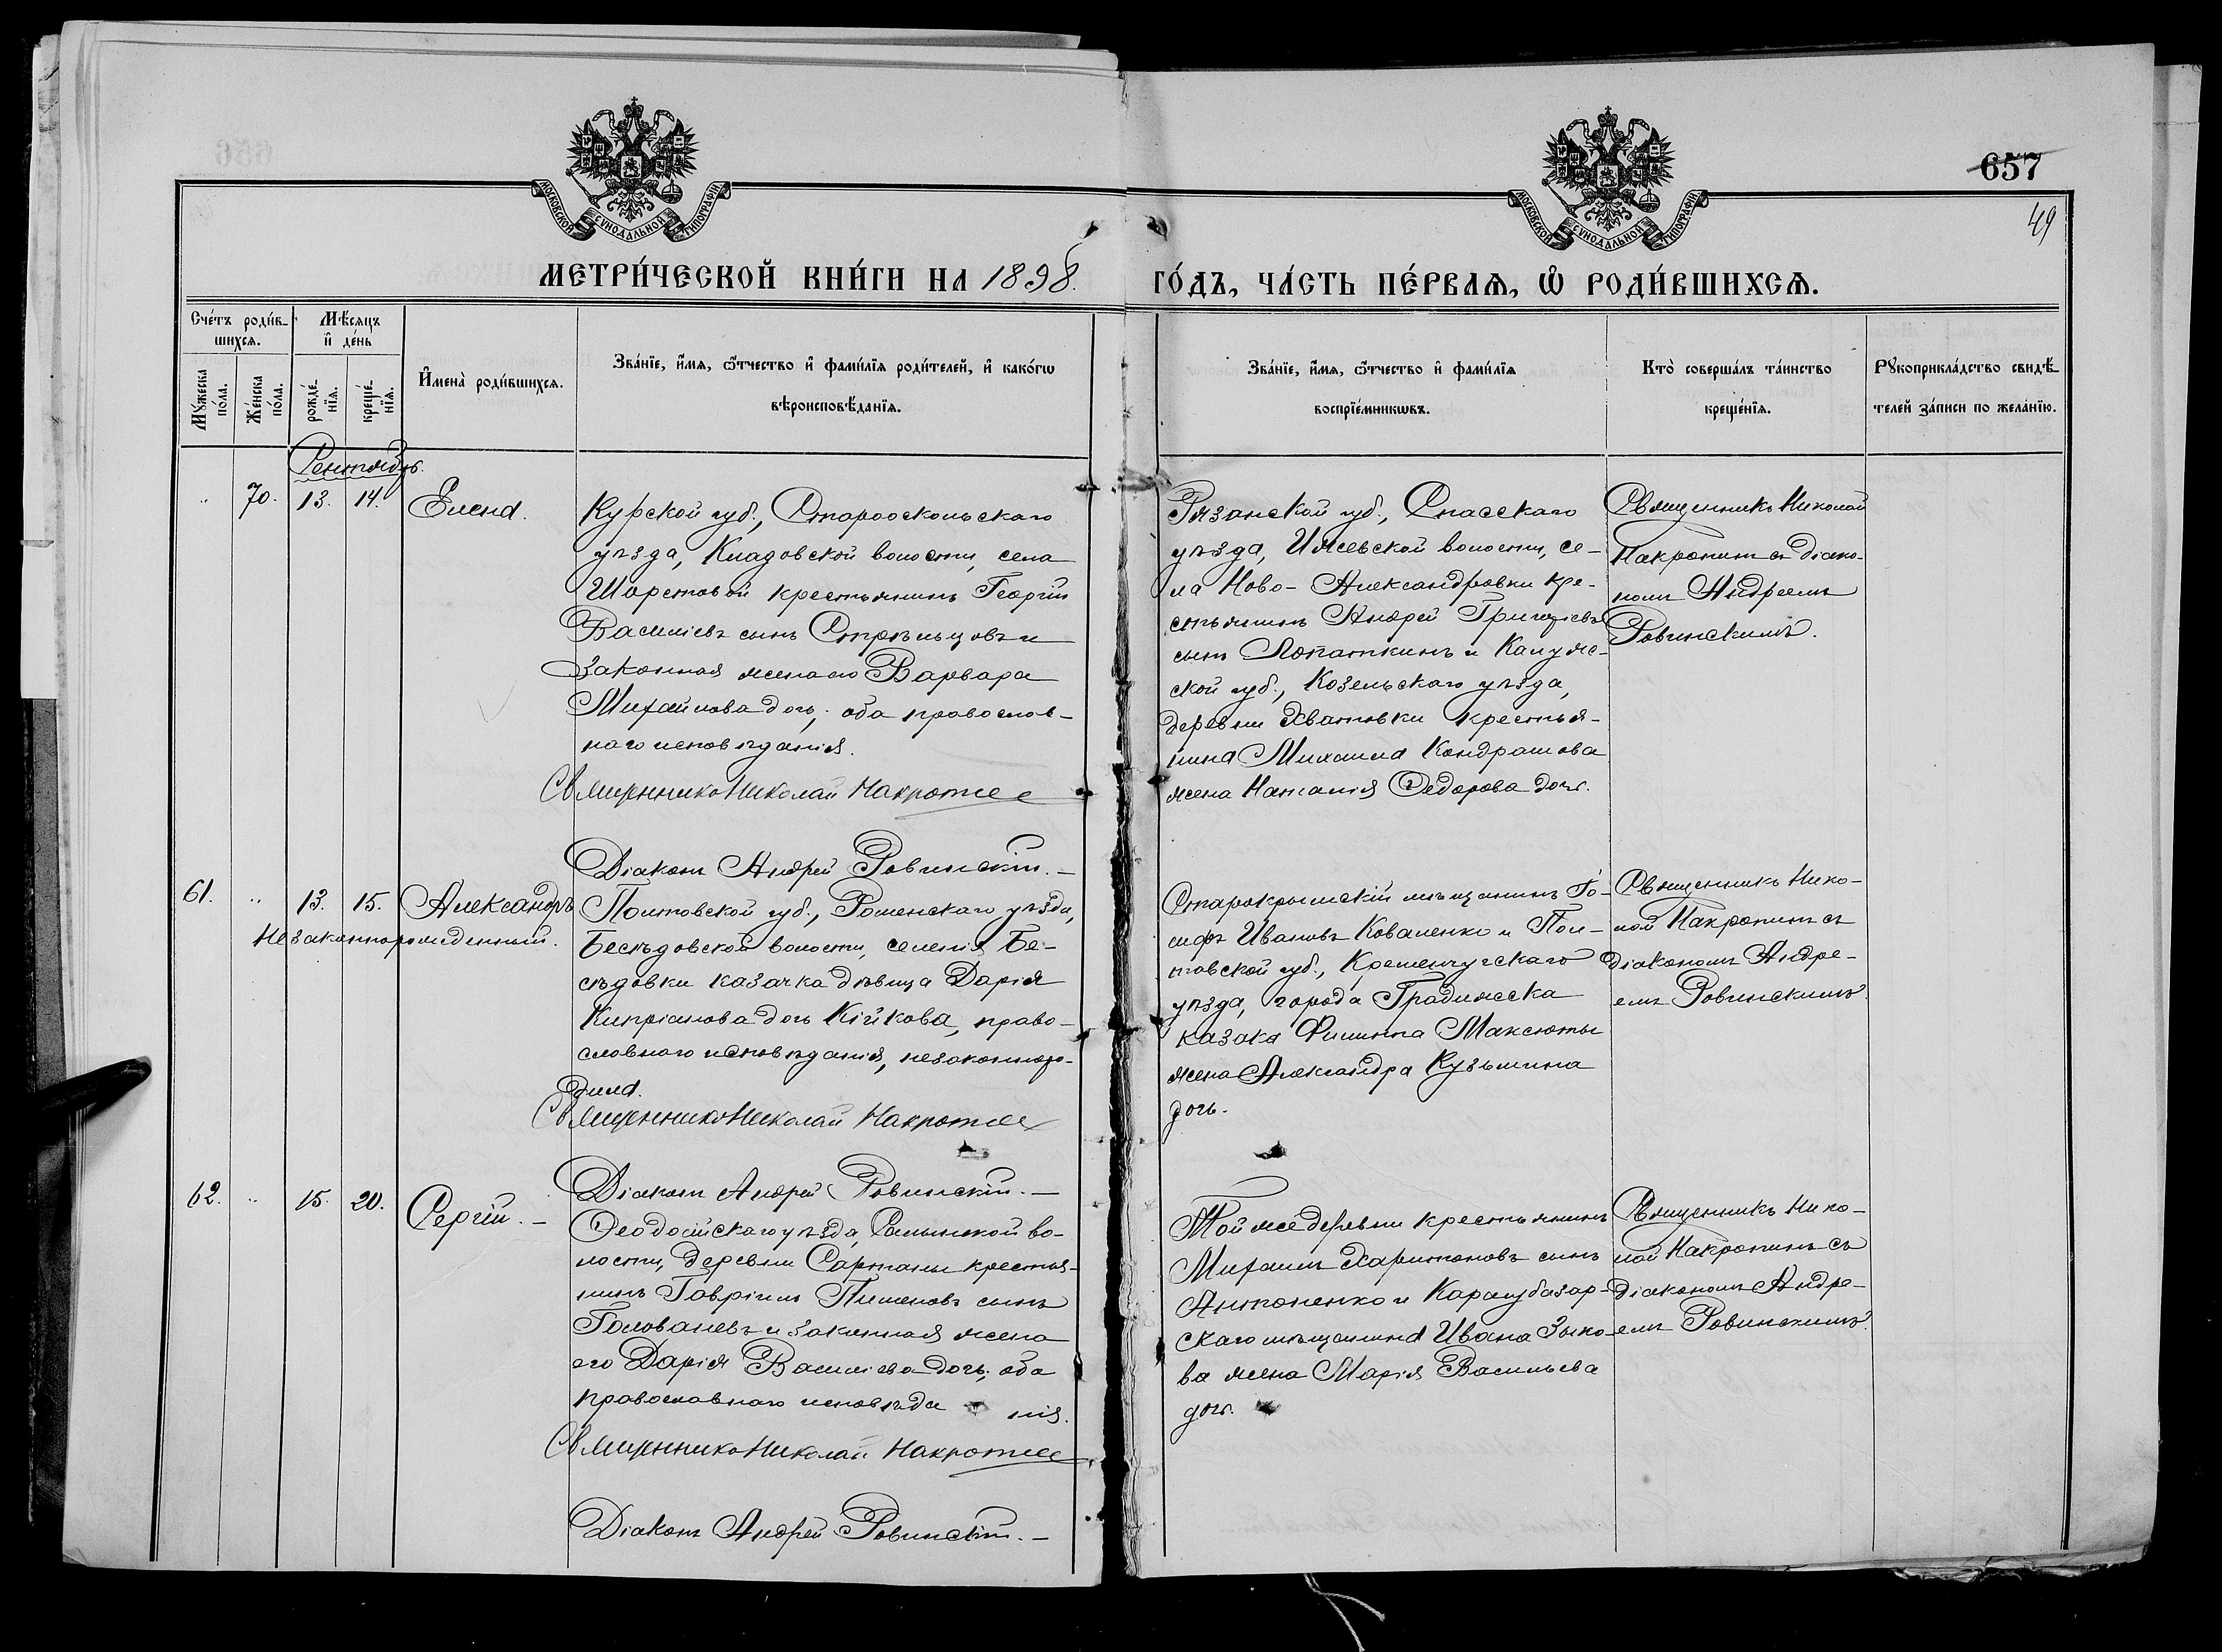 657
49
МОСКОВСКОЙ СѴНОДАЛЬНОЙ ТИПОГРАФІИ
МОСКОВСКОЙ СѴНОДАЛЬНОЙ ТИПОГРАФІИ
МЕТРИ́ЧЕСКОЙ КНИ́ГИ НА 1898.
ГО́ДЪ, ЧА́СТЬ ПЕ́РВАѦ, Ѡ҆ РОДИ́ВШИХСѦ.
Сче́тъ роди́в-
шихсѧ.
Мѣ́сѧцъ
и҆ де́нь
Мꙋ́жеска по́ла.
Же́нска по́ла.
рожде́-
нїѧ.
креще́-
нїѧ.
И҆мена̀ роди́вшихсѧ.
Зва́нїе, и҆́мѧ, ѻ҆́тчество и҆ фами́лїѧ роди́телей, и҆ како́гѡ
вѣроисповѣ́данїѧ.
Зва́нїе, и҆́мѧ, ѻ҆́тчество и҆ фами́лїѧ
воспрїе́мникѡвъ.
Кто̀ соверша́лъ та́инство
креще́нїѧ.
Рꙋкоприкла́дство свидѣ́-
телей за́писи по жела́нїю.
Сентябрь.
" 70. 13. 14. Елена.
Курской губ., Старооскольскаго
уѣзда, Кладовской волости, села
Шорстовой крестьянинъ Георгій
Василіевъ сынъ Стрѣльцовъ и
законная жена его Варвара
Михайлова дочь; оба православ-
наго исповѣданія.
Священникъ Николай Накропинъ
Діаконъ Андрей Ровинскій. —
Рязанской губ., Спасскаго
уѣзда, Ижевской волости, се-
ла Ново-Александровки кре-
стьянинъ Андрей Григоріевъ
сынъ Лопаткинъ и Калуж-
ской губ., Козельскаго уѣзда,
деревни Хватовки крестья-
нина Михаила Кондрашова
жена Наталія Ѳедорова дочь.
Священникъ Николай
Накропинъ съ діако-
номъ Андреемъ
Ровинскимъ.
61. " 13. 15. Александръ
Незаконнорожденный.
Полтовской губ., Роменскаго уѣзда,
Бесѣдовской волости, селенія Бе-
сѣдовки казачка дѣвица Дарія
Кипріанова дочь Кійкова, право-
славнаго исповѣданія, незаконноро-
дила.
Священникъ Николай Накропинъ
Діаконъ Андрей Ровинскій. —
Старокрымскій мѣщанинъ Іо-
сифъ Ивановъ Коваленко и Пол-
тавской губ., Кременчугскаго
уѣзда, города Градижска
казака Филиппа Максюты
жена Александра Кузьмина
дочь.
Священникъ Нико-
лай Накропинъ съ
діакономъ Андре-
емъ Ровинскимъ.
62. " 15. 20. Сергій. —
Ѳеодосійскаго уѣзда, Салынской во-
лости, деревни Сартаны крестья-
нинъ Гавріилъ Пименовъ сынъ
Голованевъ и законная жена
его Дарія Василіева дочь; оба
православнаго исповѣданія.
Священникъ Николай Накропинъ
Діаконъ Андрей Ровинскій. —
Той же деревни крестьянинъ
Михаилъ Харитоновъ сынъ
Антоненко и Карасубазар-
скаго мѣщанина Ивана Зыко-
ва жена Марія Васильева
дочь.
Священникъ Нико-
лай Накропинъ съ
діакономъ Андре-
емъ Ровинскимъ.